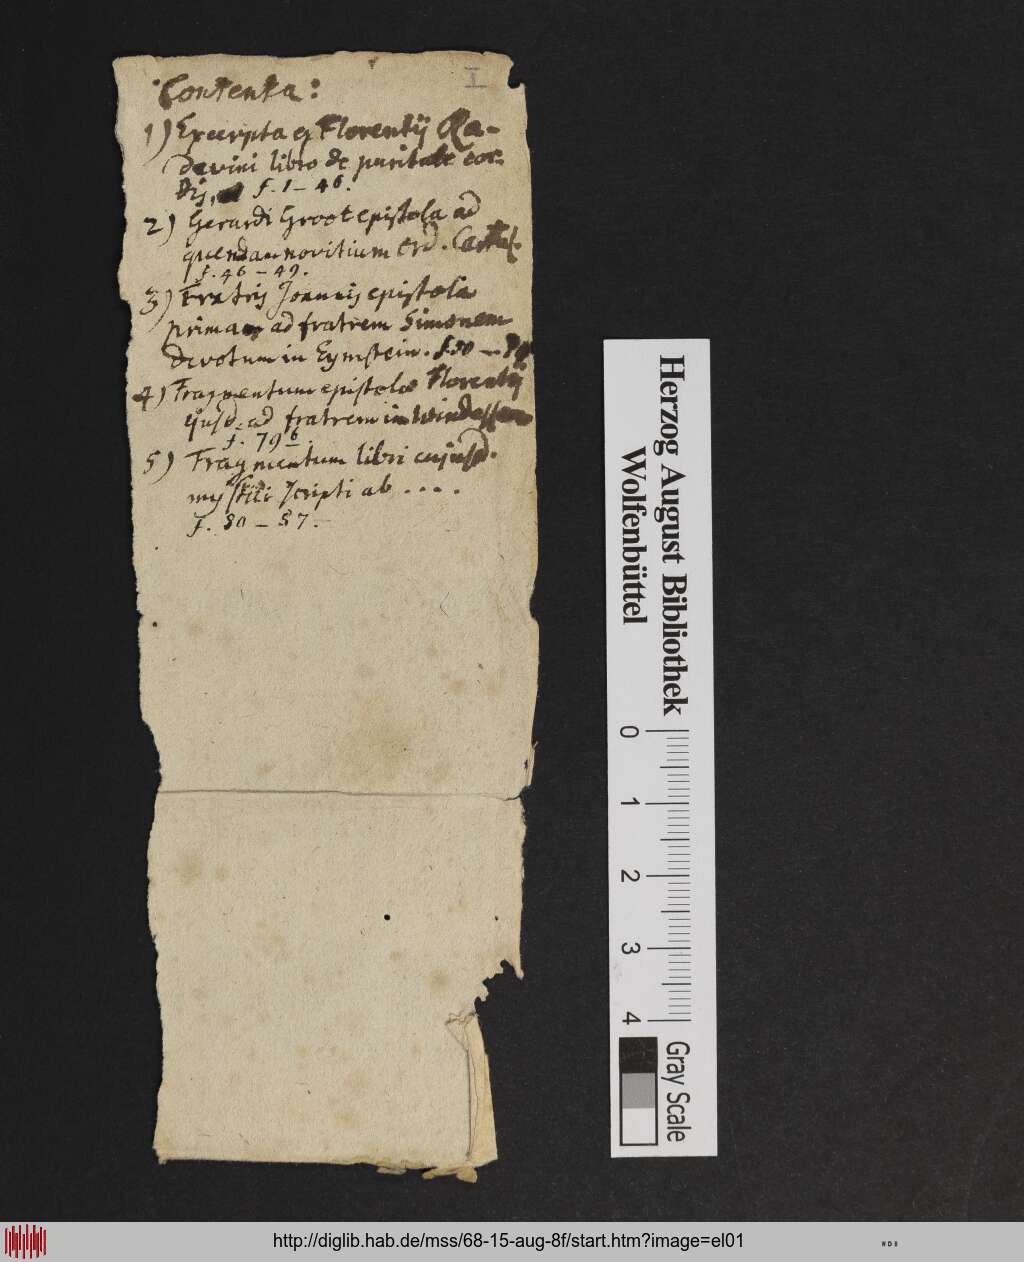 I
Contenta:
1) Excerpta ex Florentij Ra-
devini libro de puritate cor-
dis, f. 1 – 46.
2) Gerardi Groot epistola ad
quendam novitium Ord. Cartus.
f. 46 – 49.
3) Fratris Joannis epistola
prima ad fratrem Simonem
devotum in Eymstein. f. 50 –
4) Fragmentum epistolae Florentij
ejusd. ad fratrem in Windessem
f. 79 b
5) Fragmentum libri cujusd.
mystici scripti ab ....
f. 80 – 87.
Herzog August Bibliothek
Wolfenbüttel
0 1 2 3 4
Gray Scale
http://diglib.hab.de/mss/68-15-aug-8f/start.htm?image=el01
WDB